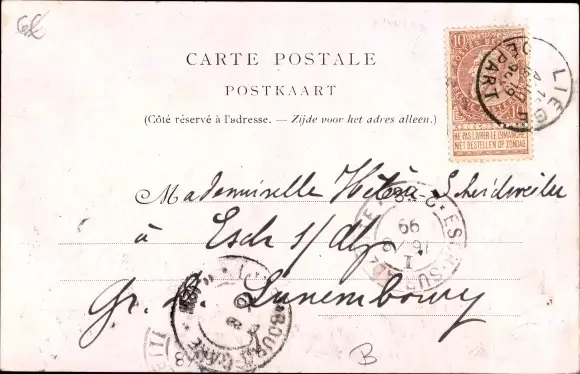 CARTE POSTALE
POSTKAART
(Côté réservé à l'adresse. — Zijde voor het adres alleen.)
10
NE PAS LIVRER LE DIMANCHE
NIET BESTELLEN OP ZONDAG
LIEG
DEPART
Mademoiselle Héléna Scheidweiler
à
Esch s/Alz
Gr. D. Luxembourg
99
B